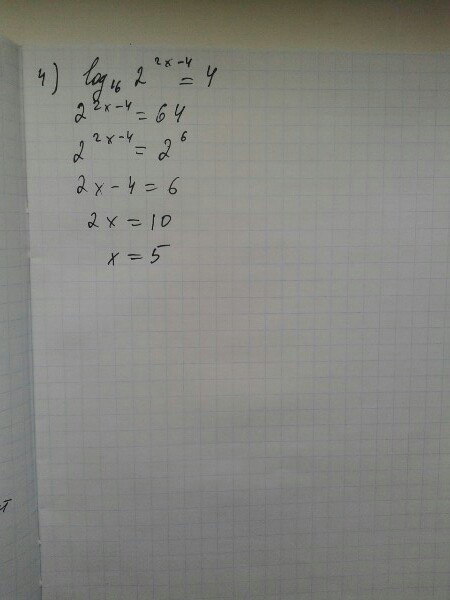 4) log₁₆ 2^(2x-4) = 4
2^(2x-4) = 64
2^(2x-4) = 2^6
2x - 4 = 6
2x = 10
x = 5